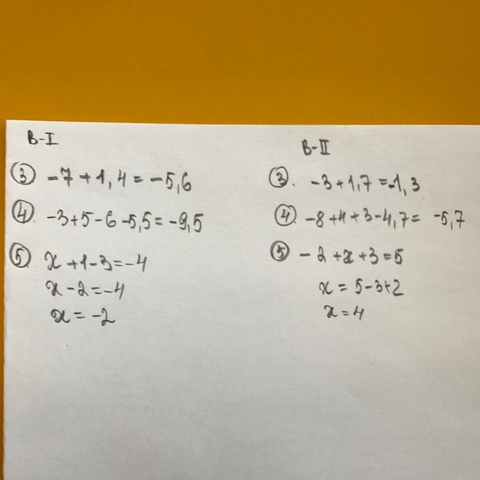 В-I
③ -7+1,4=-5,6
④ -3+5-6-5,5=-9,5
⑤ x+1-3=-4
x-2=-4
x=-2
В-II
③. -3+1,7=-1,3
④. -8+4+3-4,7= -5,7
⑤ -2+x+3=5
x=5-3+2
x=4